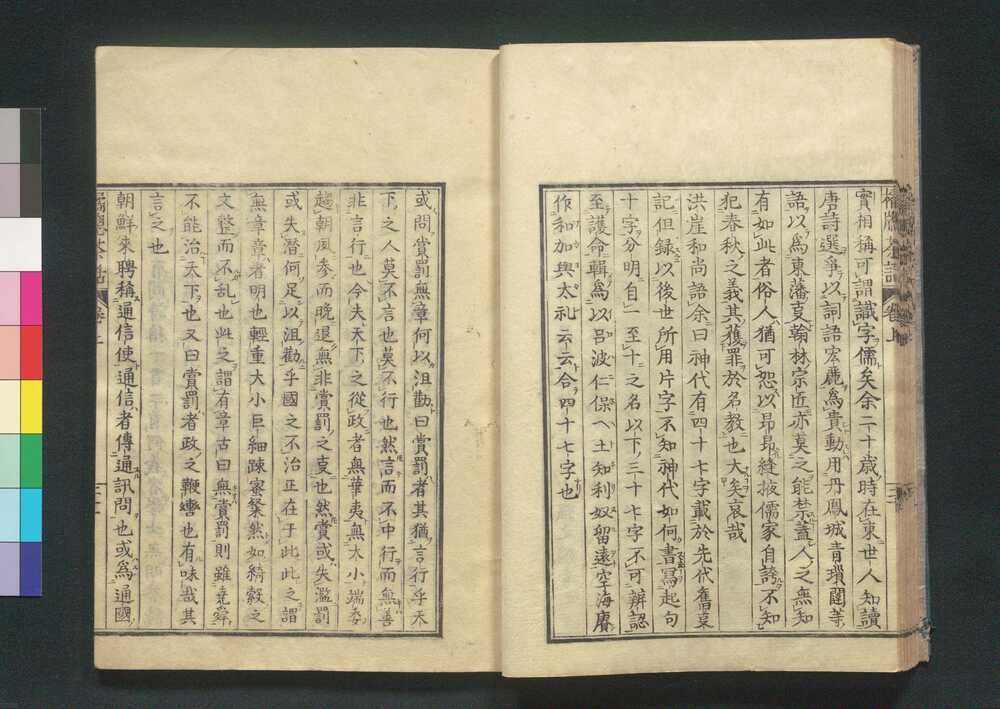 實相稱可謂識字儒矣余二十歳時在東世人知讀
唐詩選爭以詞語宏麗為貴動用丹鳳城青瑣闥等
語以為東藩叓翰林宗匠亦莫之能禁蓋人之無知
有如此者俗人猶可恕以昂昂縫掖儒家自誇不知
犯春秋之義其獲罪於名教也大矣哀哉
洪崖和尚語余曰神代有四十七字載於先代舊叓
記但録以後世所用片字不知神代如何書寫起句
十字分明自一至十之名以下三十七字不可辨認
至護命輯為以呂波仁保へ土知利奴留遠空海賡
作和加與太礼云云合四十七字也
或問賞罰無章何以沮勸曰賞罰者其猶言行乎天
下之人莫不言也莫不行也然言而不中行而無善
非言行也今夫天下之從政者無華夷無大小端委
趨朝夙参而晩退無非賞罰之叓也然賞或失濫罰
或失潛何足以沮勸乎國之不治正在于此此之謂
無章章者明也輕重大小巨細踈蜜粲然如綺縠之
文整而不乱也此之謂有章古曰無賞罰則雖堯舜
不能治天下也又曰賞罰者政之鞭轡也有味哉其
言之也
朝鮮來聘稱通信使通信者傳通訊問也或為通國